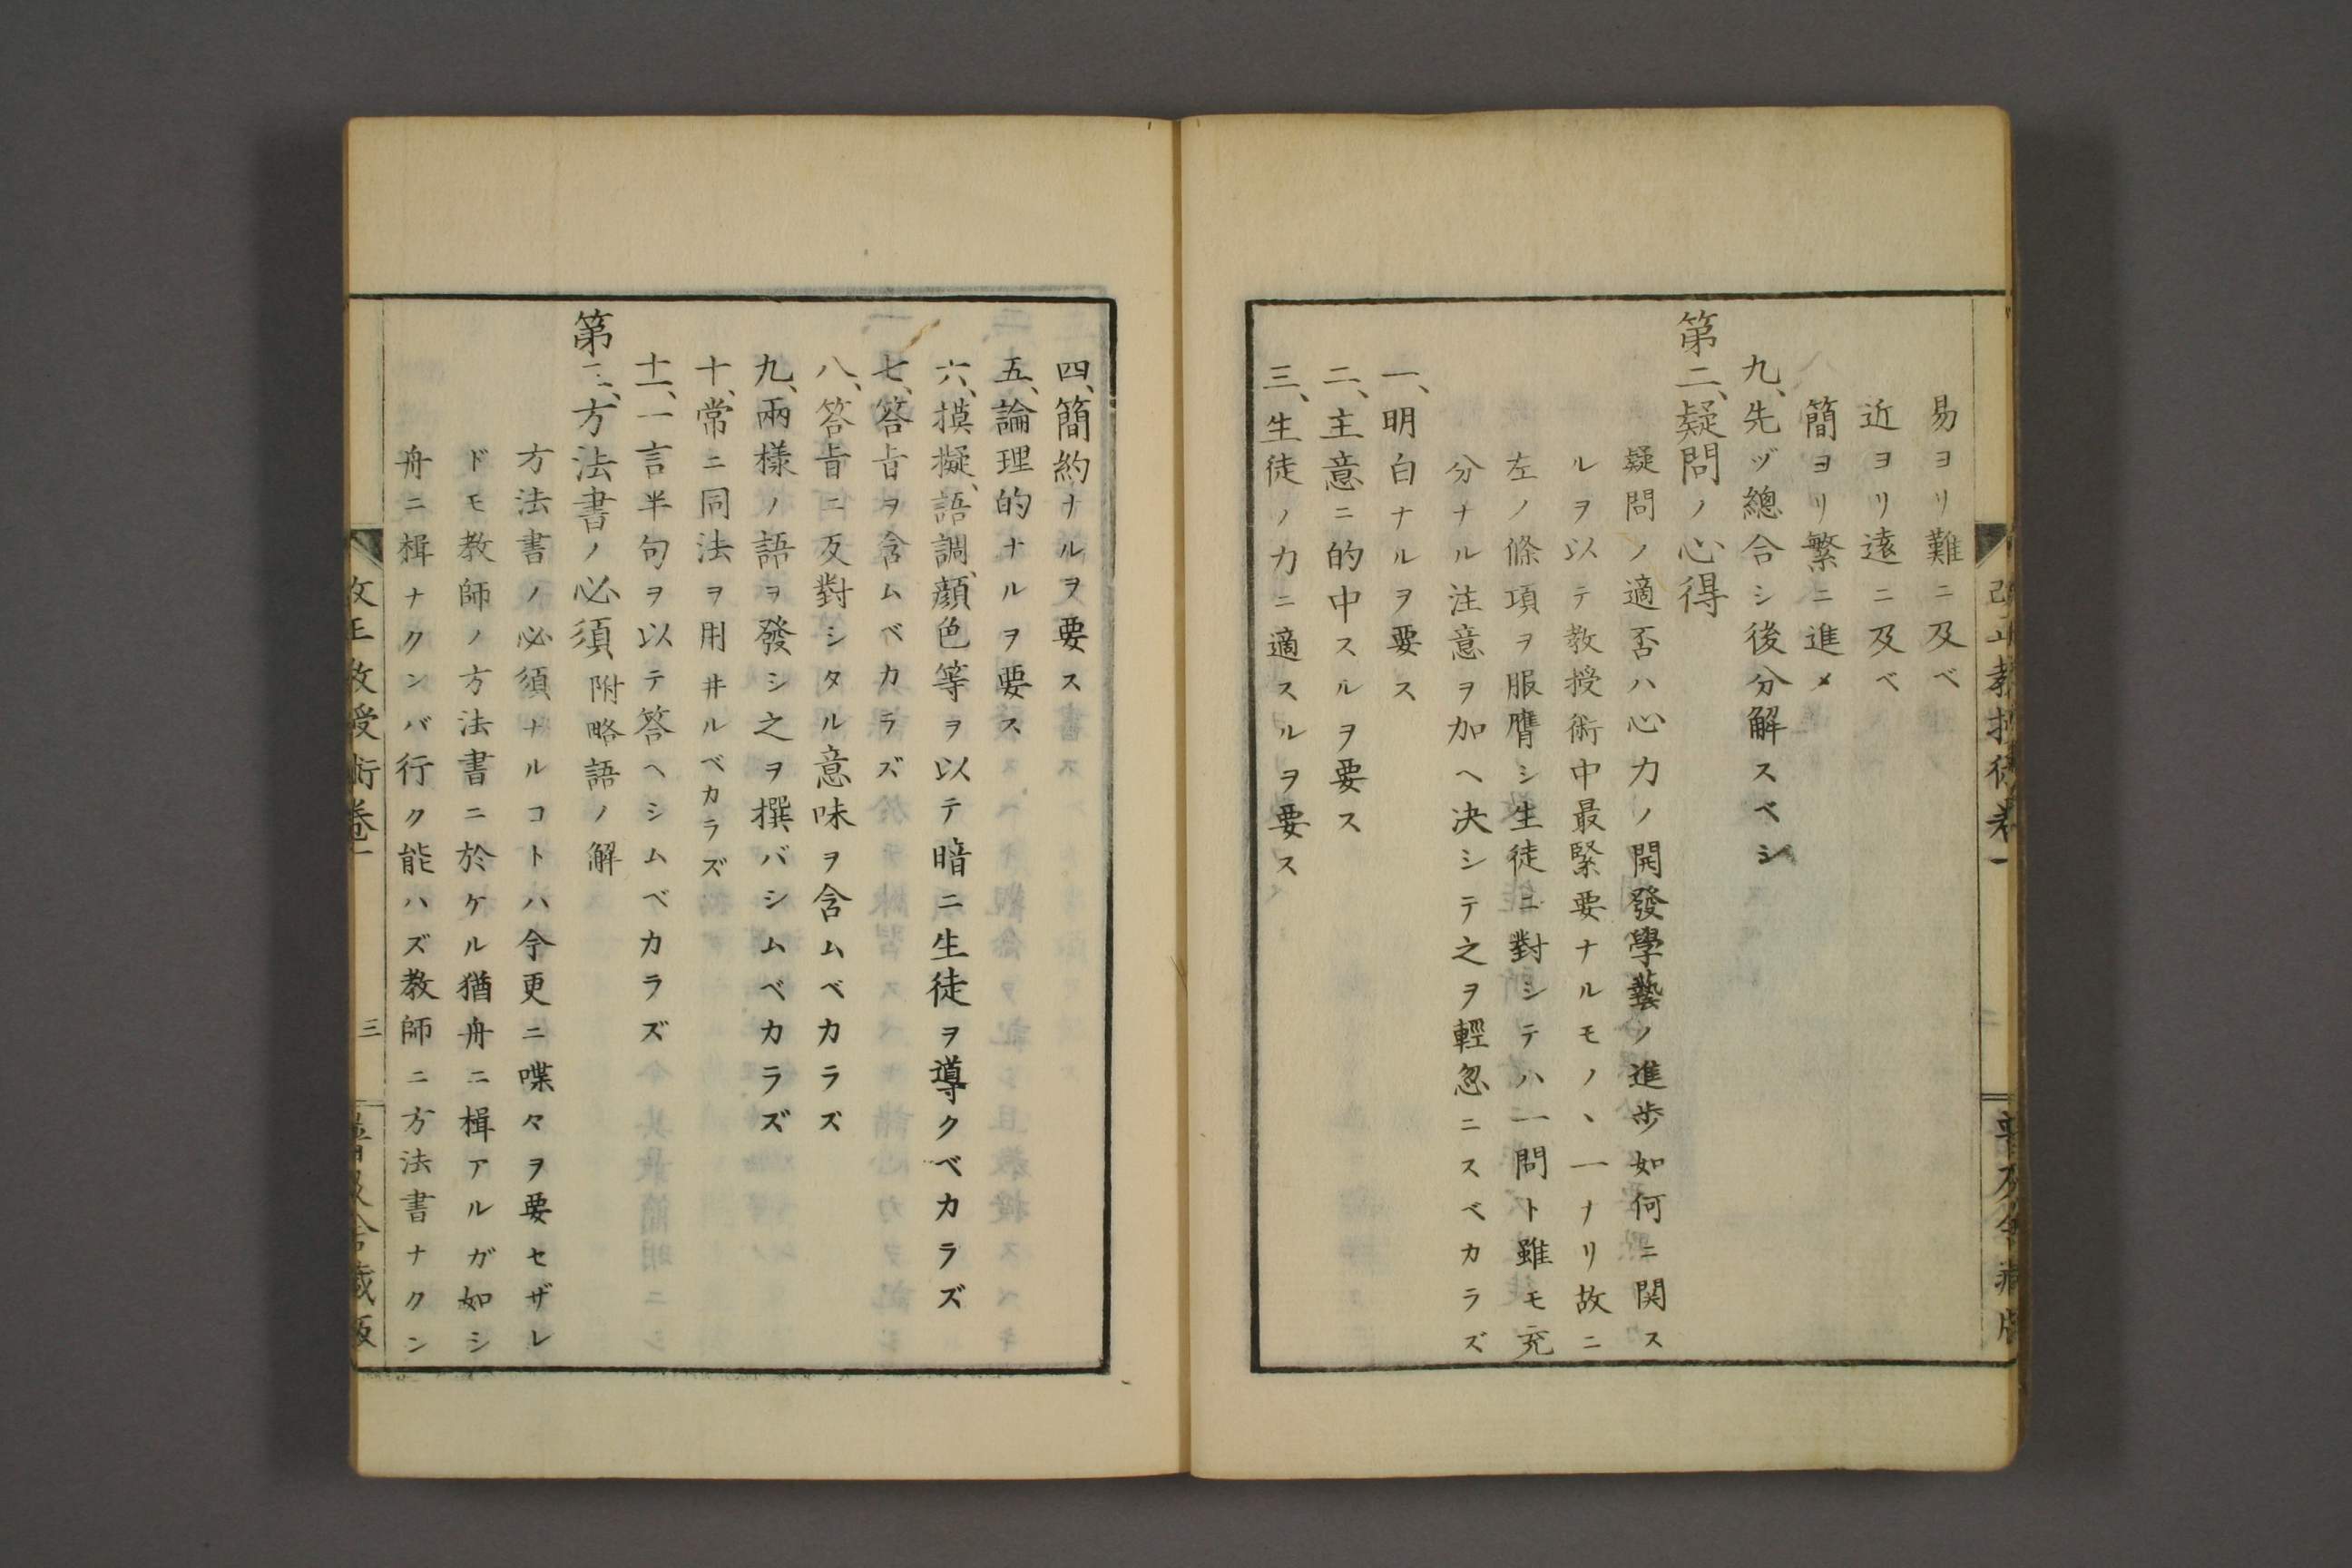 易ヨリ難ニ及ベ
近ヨリ遠ニ及ベ
簡ヨリ繁ニ進メ
九、先ヅ總合シ後分解スベシ
第二、疑問ノ心得
疑問ノ適否ハ心力ノ開發學藝ノ進歩如何ニ関ス
ルヲ以テ教授術中最緊要ナルモノヽ一ナリ故ニ
左ノ條項ヲ服膺シ生徒ニ對シテハ一問ト雖モ充
分ナル注意ヲ加ヘ决シテ之ヲ輕忽ニスベカラズ
一、明白ナルヲ要ス
二、主意ニ的中スルヲ要ス
三、生徒ノ力ニ適スルヲ要ス
四、簡約ナルヲ要ス
五、論理的ナルヲ要ス
六、摸擬、語調、顔色等ヲ以テ暗ニ生徒ヲ導クベカラズ
七、答旨ヲ含ムベカラズ
八、答旨ニ反對シタル意味ヲ含ムベカラズ
九、兩樣ノ語ヲ發シ之ヲ撰バシムベカラズ
十、常ニ同法ヲ用井ルベカラズ
十一、一言半句ヲ以テ答ヘシムベカラズ
第三、方法書ノ必須 附略語ノ解
方法書ノ必須ナルコトハ今更ニ喋々ヲ要セザレ
ドモ教師ノ方法書ニ於ケル猶舟ニ楫アルガ如シ
舟ニ楫ナクンバ行ク能ハズ教師ニ方法書ナクン
改正教授術卷一
三
普及舍藏版